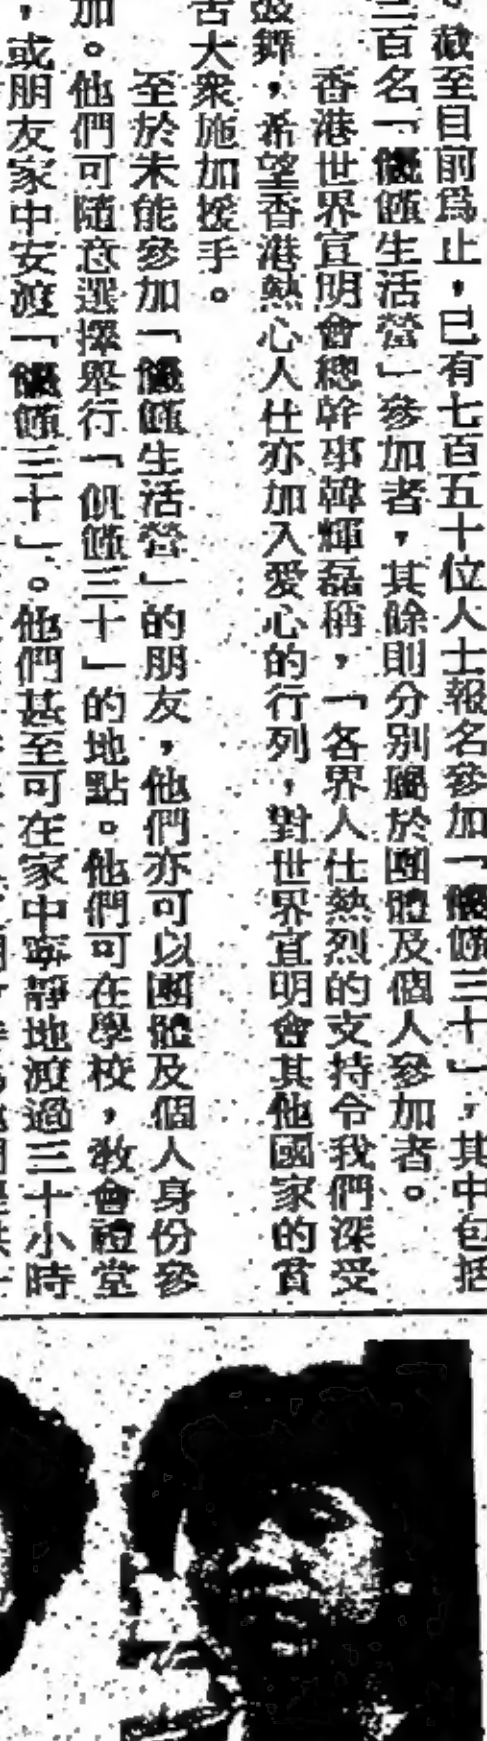 。截至目前爲止，已有七百五十位人士報名參加「饑饉三十」，其中包括
三百名「饑饉生活營」參加者，其餘則分別屬於團體及個人參加者。
香港世界宣明會總幹事韓輝磊稱，「各界人仕熱烈的支持令我們深受
鼓舞，希望香港熱心人仕亦加入愛心的行列，對世界宣明會其他國家的貧
苦大衆施加援手。
至於未能參加「饑饉生活營」的朋友，他們亦可以團體及個人身份參
加。他們可隨意選擇舉行「飢饉三十」的地點。他們可在學校，敎會禮堂
，或朋友家中安渡「饑饉三十」。他們甚至可在家中寧靜地渡過三十小時